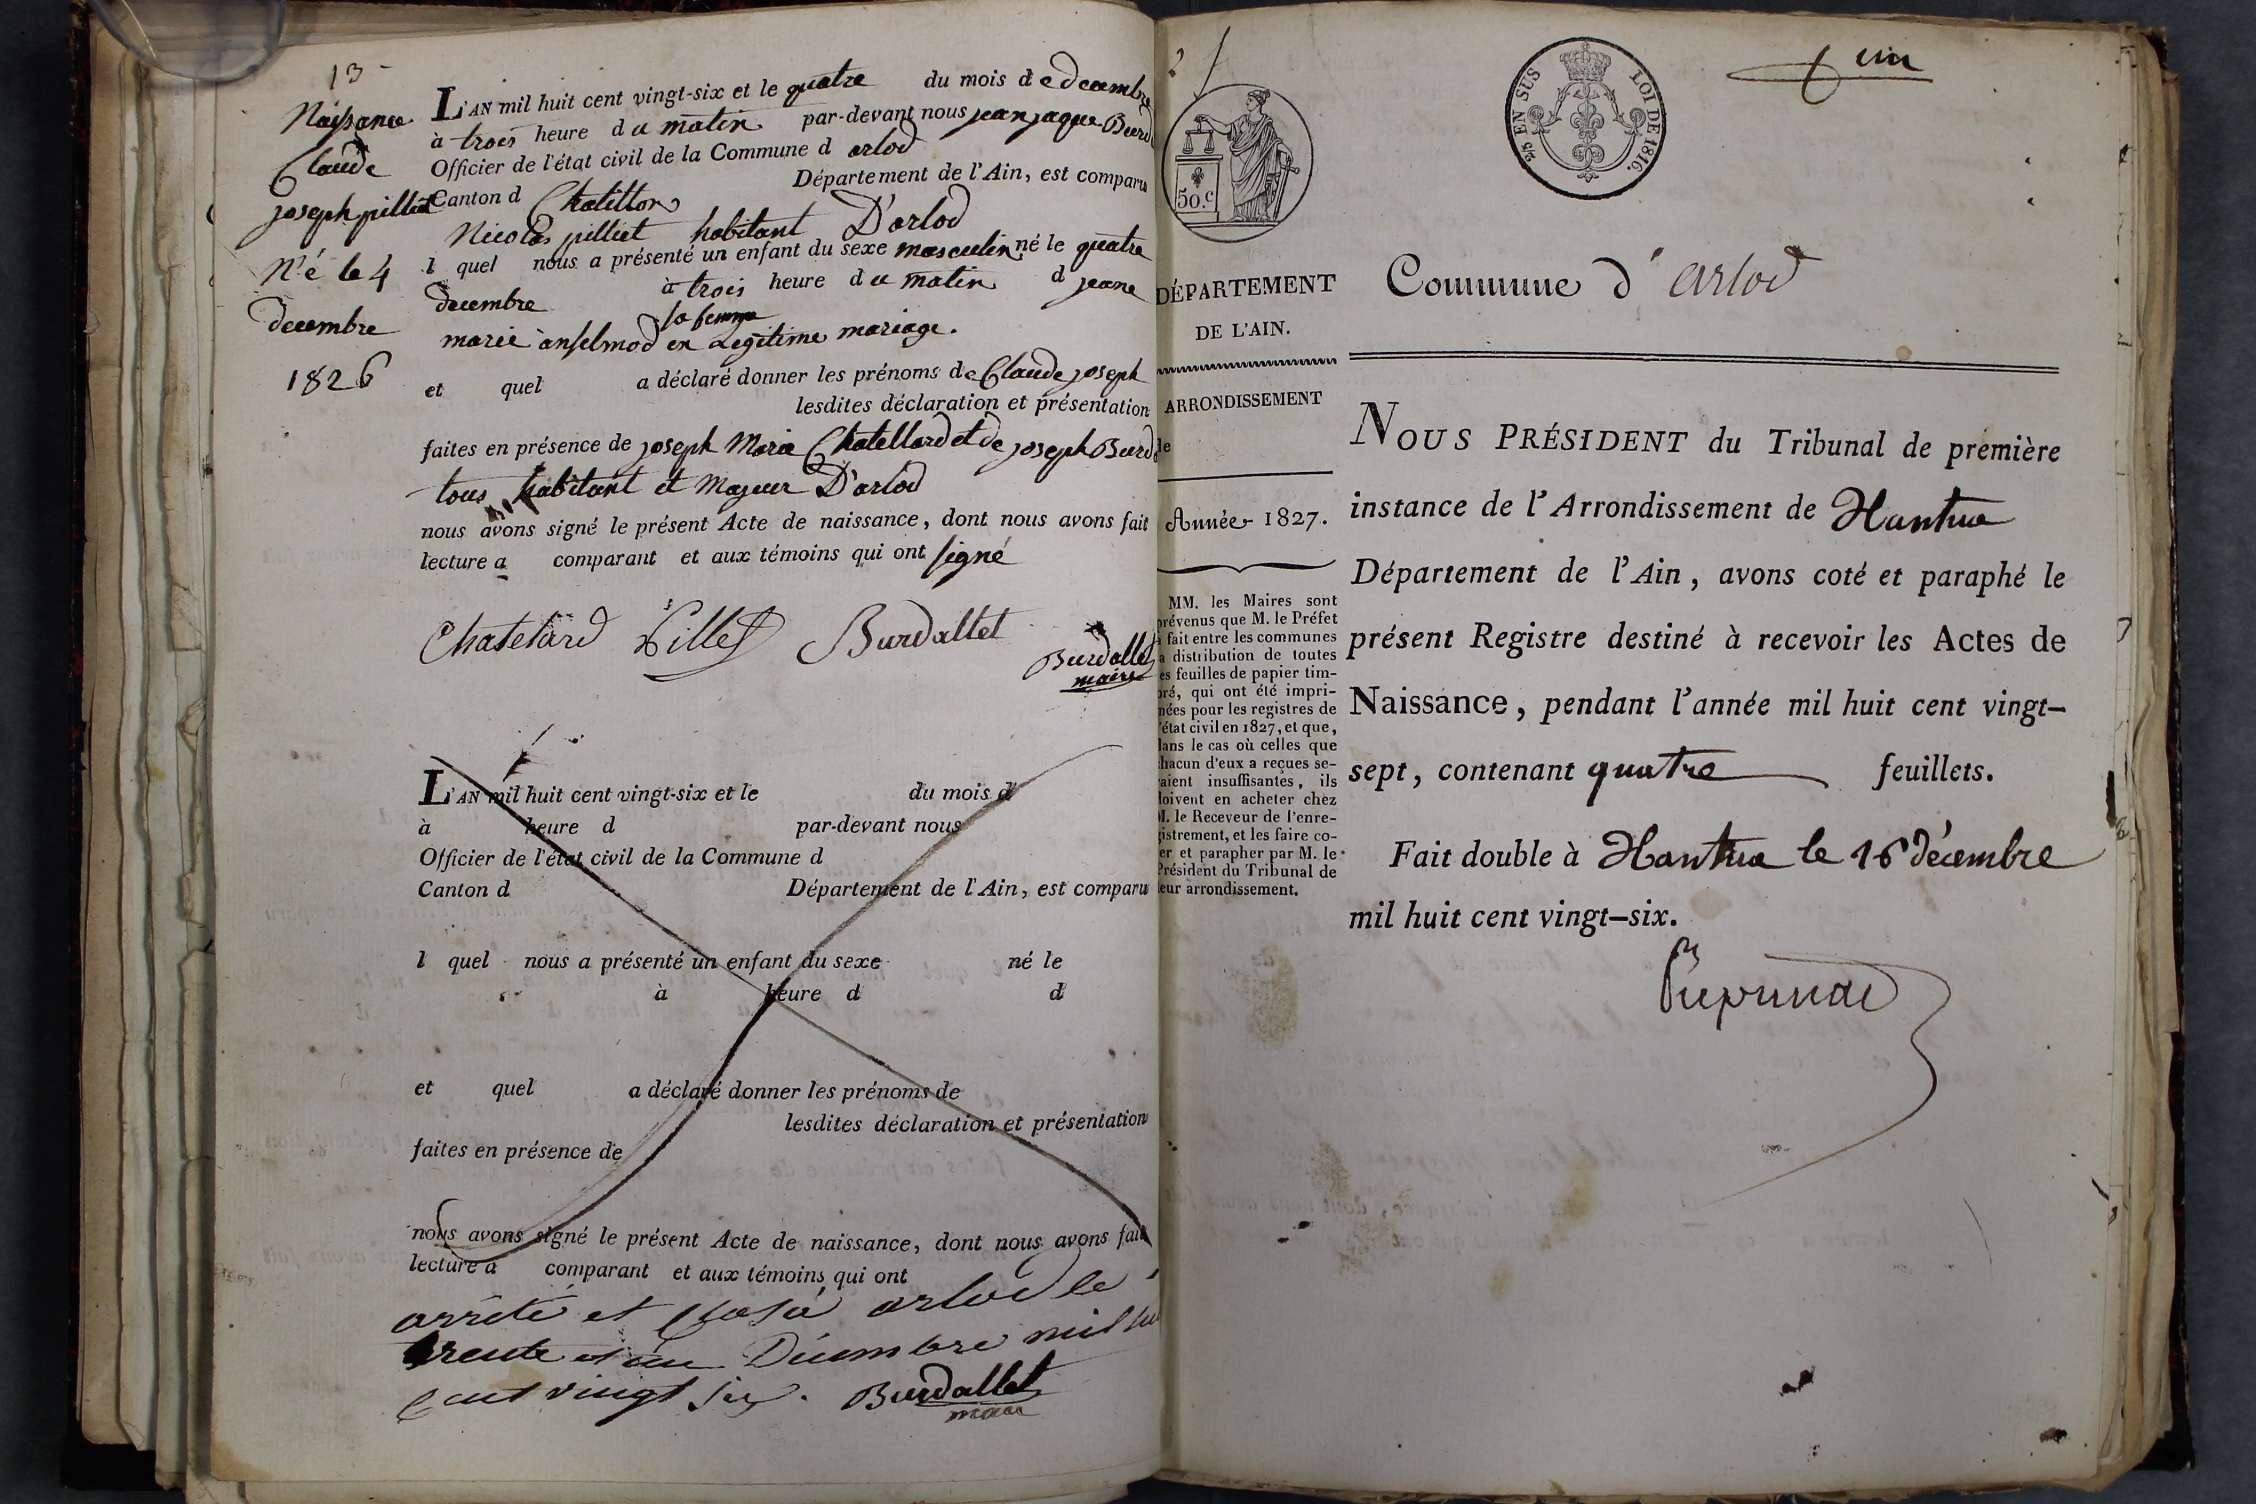 13
Naissance
Claude
joseph pilliet
Né le 4
decembre
1826
L'AN mil huit cent vingt-six et le quatre du mois de decembre
à trois heure du matin par-devant nous jean jaque Burd
Officier de l'état civil de la Commune d arlod
Canton d Chatillon Département de l'Ain, est comparu
Nicolas pilliet habitant D'arlod
l quel nous a présenté un enfant du sexe masculin né le quatre
decembre à trois heure du matin d jeane
sa femme
marie anselmod en Legitime mariage.
et quel a déclaré donner les prénoms de Claude joseph
lesdites déclaration et présentation
faites en présence de joseph Marie Chatellard et de joseph Burd
tous habitant et Majeur D'arlod
nous avons signé le présent Acte de naissance, dont nous avons fait
lecture a comparant et aux témoins qui ont signé
Chatelard Pillet Burdallet
Burdallet
maire
L'AN mil huit cent vingt-six et le du mois d
à heure d par-devant nous
Officier de l'état civil de la Commune d
Canton d Département de l'Ain, est comparu
l quel nous a présenté un enfant du sexe né le
à heure d d
et quel a déclaré donner les prénoms de
lesdites déclaration et présentation
faites en présence de
nous avons signé le présent Acte de naissance, dont nous avons fait
lecture a comparant et aux témoins qui ont
arrêté et Clos à arlod le
trente et un Décembre mil hu
Cent vingt six. Burdallet
maire
50.c
DÉPARTEMENT
DE L'AIN.
ARRONDISSEMENT
de
Année 1827.
MM. les Maires sont
prévenus que M. le Préfet
a fait entre les communes
la distribution de toutes
les feuilles de papier tim-
bré, qui ont été impri-
mées pour les registres de
l'état civil en 1827, et que,
dans le cas où celles que
chacun d'eux a reçues se-
raient insuffisantes, ils
doivent en acheter chez
M. le Receveur de l'enre-
gistrement, et les faire co-
ter et parapher par M. le
Président du Tribunal de
leur arrondissement.
2/5 EN SUS LOI DE 1816.
un
Commune d'arlod
NOUS PRÉSIDENT du Tribunal de première
instance de l'Arrondissement de Nantua
Département de l'Ain, avons coté et paraphé le
présent Registre destiné à recevoir les Actes de
Naissance, pendant l'année mil huit cent vingt-
sept, contenant quatre feuillets.
Fait double à Nantua le 16 décembre
mil huit cent vingt-six.